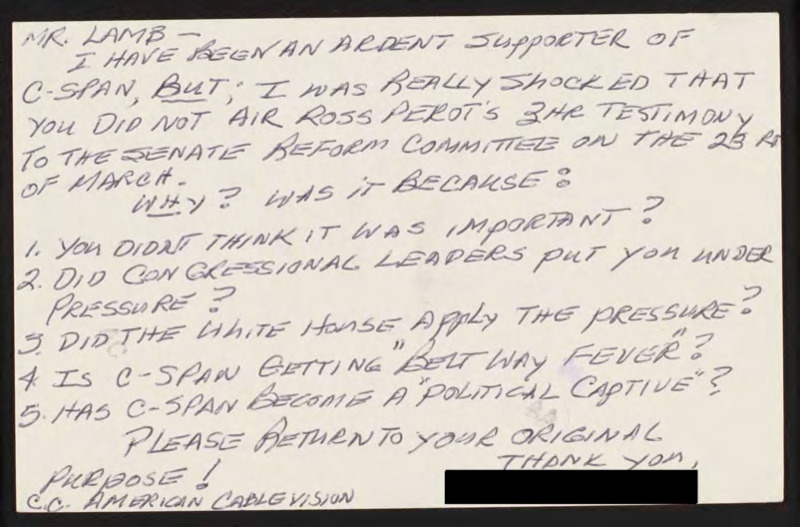 MR. LAMB -
I HAVE BEEN AN ARDENT SUPPORTER OF
C-SPAN, BUT; I WAS REALLY SHOCKED THAT
YOU DID NOT AIR ROSS PEROT'S 3HR TESTIMONY
TO THE SENATE REFORM COMMITTEE ON THE 23 RD
OF MARCH.
WHY? WAS IT BECAUSE:
1. YOU DIDNT THINK IT WAS IMPORTANT?
2. DID CONGRESSIONAL LEADERS PUT YOU UNDER
PRESSURE?
3. DID THE WHITE HOUSE APPLY THE PRESSURE?
4. IS C-SPAN GETTING "BELT WAY FEVER"?
5. HAS C-SPAN BECOME A "POLITICAL CAPTIVE"?
PLEASE RETURN TO YOUR ORIGINAL
PURPOSE!
THANK YOU,
C.C. AMERICAN CABLEVISION